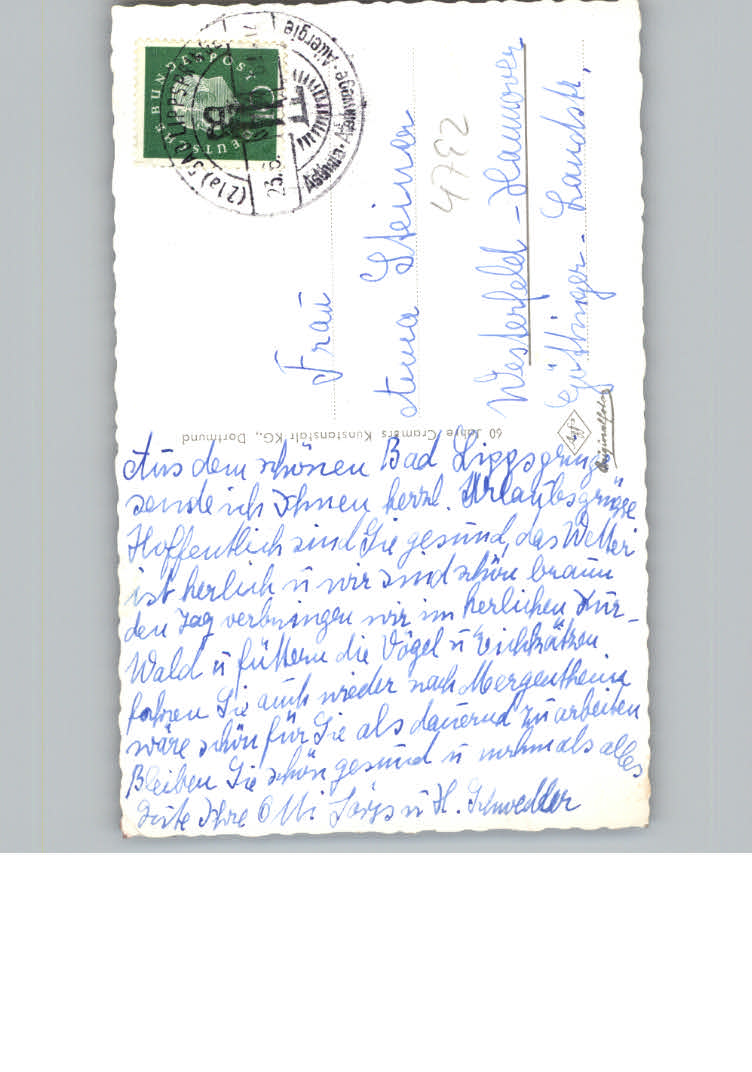 Aus dem schönen Bad Lippspringe
sende ich Ihnen herzl. Urlaubsgrüße
Hoffentlich sind Sie gesund, das Wetter
ist herlich u wir sind schön braun
den Tag verbringen wir im herlichen Kur-
Wald u füttern die Vögel u Eichkätzen
fahren Sie auch wieder nach Mergentheim
wäre schön für Sie als dauernd zu arbeiten
Bleiben Sie schön gesund u nochmals alles
Gute Ihre Otti u H. Schwedler
Frau
Anna Steiner
Westerfeld - Hannover
Göttinger - Landstr,
4732
60 Jahre Cramers Kunstanstalt KG., Dortmund
Agfa
Originalfoto
DEUTSCHE BUNDESPOST
8
(21a) BAD LIPPSPRINGE
Asthma · Atemwege · Allergie